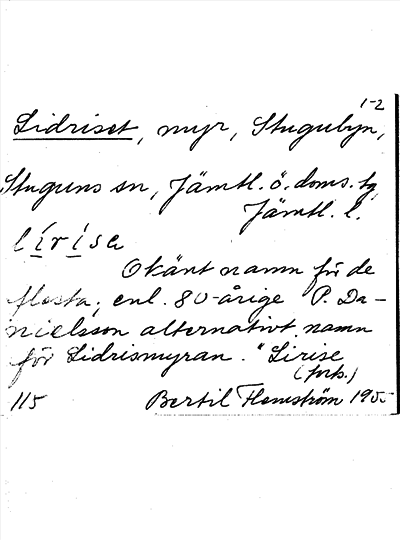 1-2
Lidriset, myr, Stugubyn,
Stuguns sn, Jämtl. ö. doms. tg,
Jämtl. l.
lírísa
Okänt namn för de
flesta, enl. 80-årige P. Da-
nielsson alternativt namn
för Lidrismyran. "Lirise
(forts.)
115 Bertil Flemström 1955